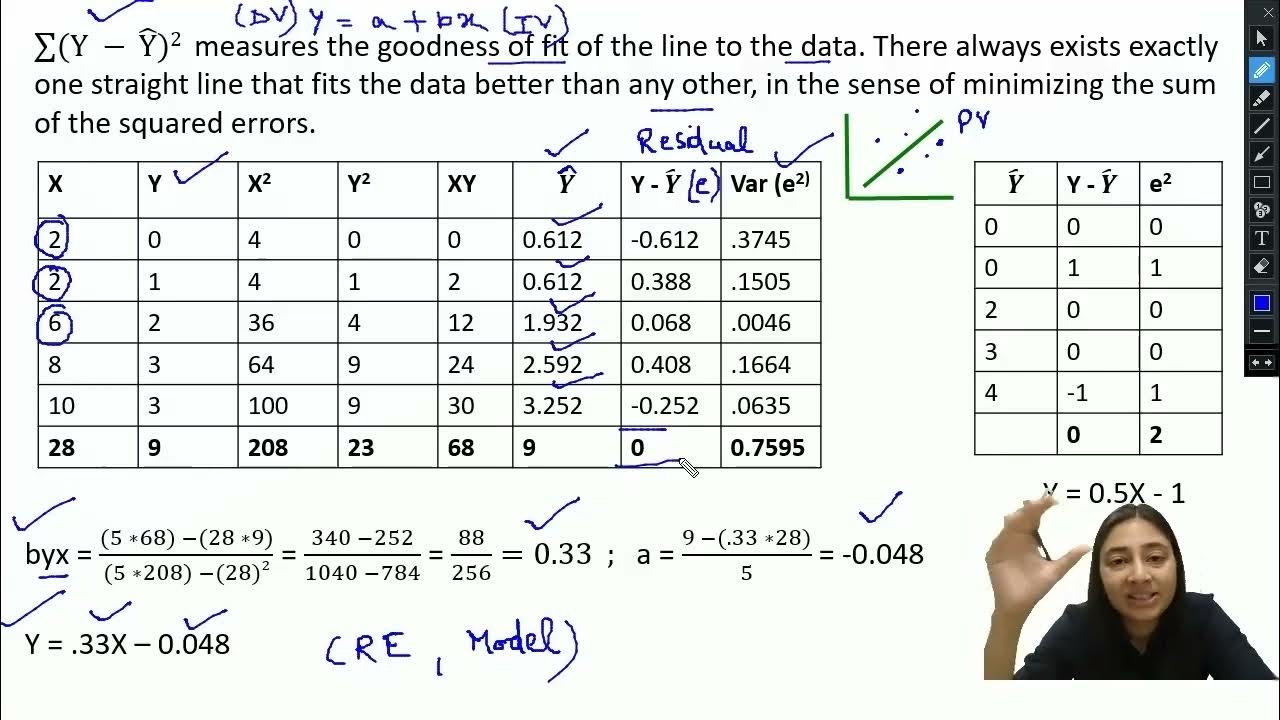 (DV) Y = a + bx (IV)
∑(Y − Ŷ)² measures the goodness of fit of the line to the data. There always exists exactly
one straight line that fits the data better than any other, in the sense of minimizing the sum
of the squared errors.
Residual
PV
X Y X² Y² XY Ŷ Y - Ŷ (e) Var (e²)
2 0 4 0 0 0.612 -0.612 .3745
2 1 4 1 2 0.612 0.388 .1505
6 2 36 4 12 1.932 0.068 .0046
8 3 64 9 24 2.592 0.408 .1664
10 3 100 9 30 3.252 -0.252 .0635
28 9 208 23 68 9 0 0.7595
Ŷ Y - Ŷ e²
0 0 0
0 1 1
2 0 0
3 0 0
4 -1 1
0 2
Y = 0.5X - 1
byx = (5 *68) −(28 *9) / (5 *208) −(28)² = 340 −252 / 1040 −784 = 88 / 256 = 0.33 ; a = 9 −(.33 *28) / 5 = -0.048
Y = .33X – 0.048
(RE, Model)
T